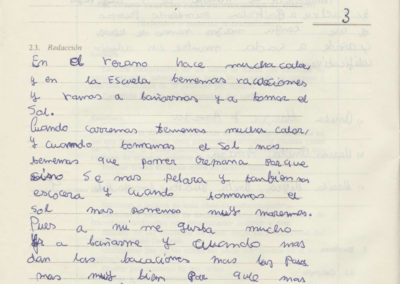 3
2.3. Redacción
En el verano hace mucha calor
y en la Escuela tenemas vacaciones
y vamos a bañarnos y a tomar el
Sol.
Cuando corremos tenemos mucha calor,
y cuando tomamos el Sol nos
tenemos que poner cremana porque
sino Se nos pelara y tambien nos
escocera y cuando tomamos el
Sol nos ponemos muy morenos.
Pues a mi me gusta mucho
a bañarme y cuando nos
dan las bacaciones nos las
nos muy bien por que nos